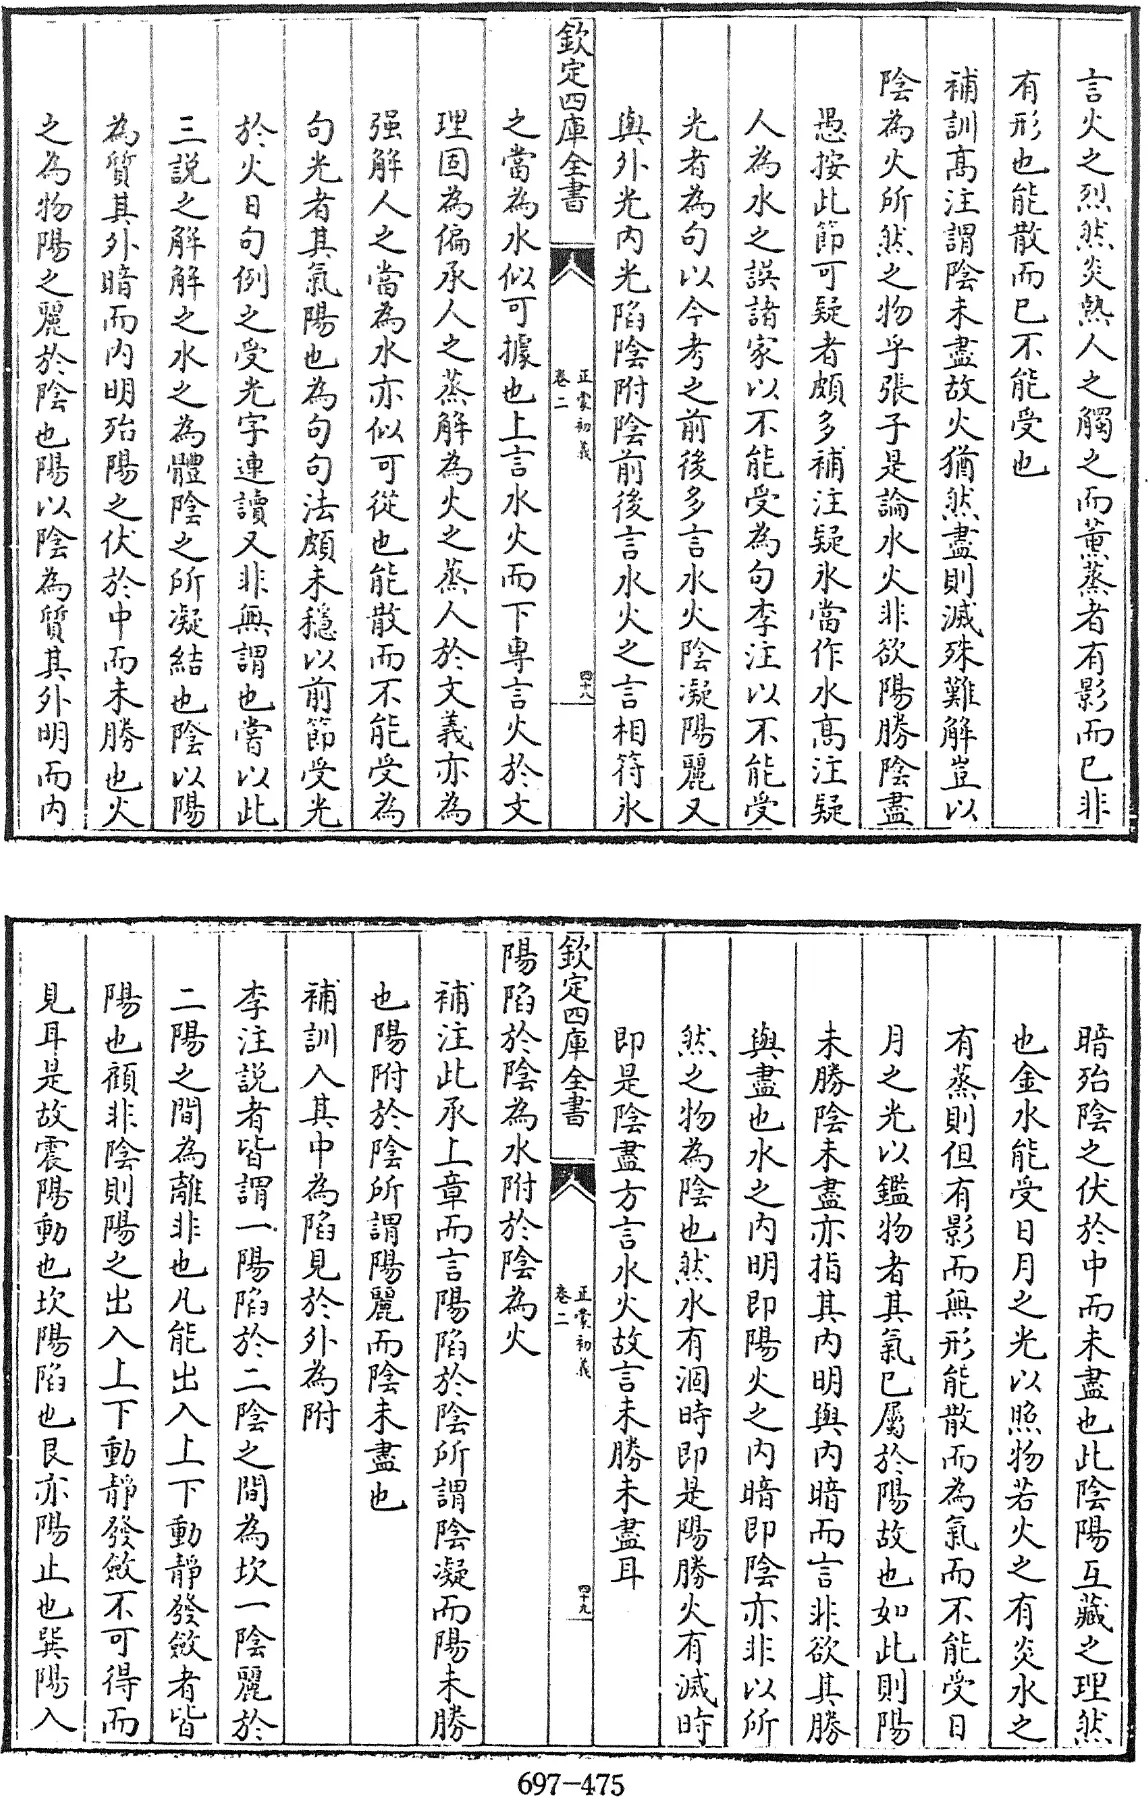 言火之烈然炎熱人之觸之而薰蒸者有影而已非
有形也能散而已不能受也
補訓髙注謂陰未盡故火猶然盡則滅殊難解豈以
陰為火所然之物乎張子是論水火非欲陽勝陰盡
愚按此節可疑者頗多補注疑氷當作水髙注疑
人為水之誤諸家以不能受為句李注以不能受
光者為句以今考之前後多言水火陰凝陽麗又
與外光内光陷陰附陰前後言水火之言相符氷
欽定四庫全書
正蒙初義
卷二
四十八
之當為水似可據也上言水火而下専言火於文
理固為偏承人之蒸解為火之蒸人於文義亦為
强解人之當為水亦似可從也能散而不能受為
句光者其氣陽也為句句法頗未穩以前節受光
於火日句例之受光字連讀又非無謂也嘗以此
三説之解解之水之為體陰之所凝結也陰以陽
為質其外暗而内明殆陽之伏於中而未勝也火
之為物陽之麗於陰也陽以陰為質其外明而内
暗殆陰之伏於中而未盡也此陰陽互藏之理然
也金水能受日月之光以照物若火之有炎水之
有蒸則但有影而無形能散而為氣而不能受日
月之光以鑑物者其氣已屬於陽故也如此則陽
未勝陰未盡亦指其内明與内暗而言非欲其勝
與盡也水之内明即陽火之内暗即陰亦非以所
然之物為陰也然水有涸時即是陽勝火有滅時
即是陰盡方言水火故言未勝未盡耳
欽定四庫全書
正蒙初義
卷二
四十九
陽陷於陰為水附於陰為火
補注此承上章而言陽陷於陰所謂陰凝而陽未勝
也陽附於陰所謂陽麗而陰未盡也
補訓入其中為陷見於外為附
李注説者皆謂一陽陷於二陰之間為坎一陰麗於
二陽之間為離非也凡能出入上下動靜發斂者皆
陽也顧非陰則陽之出入上下動靜發斂不可得而
見耳是故震陽動也坎陽陷也艮亦陽止也巽陽入
697-475